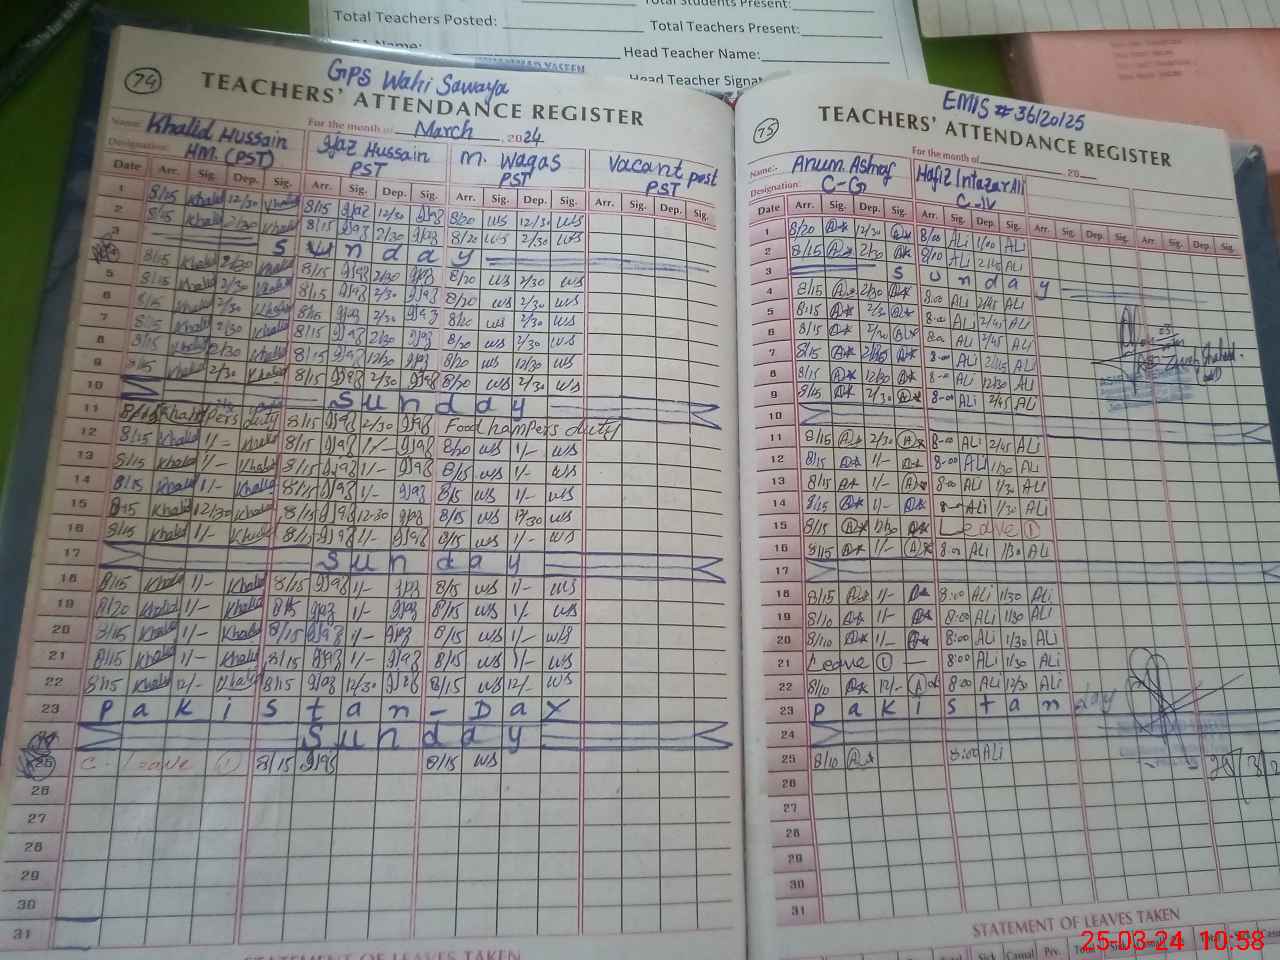 Total Students Present:
Total Teachers Posted: Total Teachers Present:
Name: Head Teacher Name:
Head Teacher
74
GPS Wahi Sawaya
TEACHERS' ATTENDANCE REGISTER
For the month of March 2024
Name: Khalid Hussain Ijaz Hussain M. Waqas Vacant post
Designation: HM. (PST) PST PST PST
Date Arr. Sig. Dep. Sig. Arr. Sig. Dep. Sig. Arr. Sig. Dep. Sig. Arr. Sig. Dep. Sig.
1 8/15 Khalid 12/30 Khalid 8/15 Ijaz 12/30 Ijaz 8/20 ws 12/30 ws
2 8/15 Khalid 2/30 Khalid 8/15 Ijaz 2/30 Ijaz 8/20 ws 2/30 ws
3 Sunday
8/15 Khalid 2/30 Khalid 8/15 Ijaz 2/30 Ijaz 8/20 ws 2/30 ws
5 8/15 Khalid 2/30 Khalid 8/15 Ijaz 2/30 Ijaz 8/20 ws 2/30 ws
6 8/15 Khalid 2/30 Khalid 8/15 Ijaz 2/30 Ijaz 8/20 ws 2/30 ws
7 8/15 Khalid 2/30 Khalid 8/15 Ijaz 2/30 Ijaz 8/20 ws 2/30 ws
8 8/15 Khalid Khalid 8/15 Ijaz 12/30 Ijaz 8/20 ws 12/30 ws
9 8/15 Khalid 2/30 Khalid 8/15 Ijaz 2/30 Ijaz 8/20 ws 2/30 ws
10 Sunday
11 duty 8/15 Ijaz 2/30 Ijaz Food hampers duty
12 8/15 Khalid 1/- Khalid 8/15 Ijaz 1/- Ijaz 8/20 ws 1/- ws
13 8/15 Khalid 1/- Khalid 8/15 Ijaz 1/- Ijaz 8/15 ws 1/- ws
14 8/15 Khalid 1/- Khalid 8/15 Ijaz 1/- Ijaz 8/15 ws 1/- ws
15 8/15 Khalid 12/30 Khalid 8/15 Ijaz 12-30 Ijaz 8/15 ws 12/30 ws
16 8/15 Khalid 1/- Khalid 8/15 Ijaz 1/- Ijaz 8/15 ws 1/- ws
17 Sunday
18 8/15 Khalid 1/- Khalid 8/15 Ijaz 1/- Ijaz 8/15 ws 1/- ws
19 8/20 Khalid 1/- Khalid 8/15 Ijaz 1/- Ijaz 8/15 ws 1/- ws
20 8/15 Khalid 1/- Khalid 8/15 Ijaz 1/- Ijaz 8/15 ws 1/- ws
21 8/15 Khalid 1/- Khalid 8/15 Ijaz 1/- Ijaz 8/15 ws 1/- ws
22 8/15 Khalid 12/- Khalid 8/15 Ijaz 12/30 Ijaz 8/15 ws 12/- ws
23 Pakistan-Day
Sunday
25 C-Leave 1 8/15 Ijaz 8/15 ws
26
27
28
29
30
31
STATEMENT OF LEAVES TAKEN
75
EMIS # 36120125
TEACHERS' ATTENDANCE REGISTER
For the month of 20
Name:- Anum Ashraf Hafiz Intazar Ali
Designation: C-G C-IV
Date Arr. Sig. Dep. Sig. Arr. Sig. Dep. Sig. Arr. Sig. Dep. Sig. Arr. Sig. Dep. Sig.
1 8/20 12/30 8/00 ALi 1/00 ALi
2 8/15 2/30 8/10 ALi 2/45 ALi
3 Sunday
4 8/15 2/30 8:00 ALi 2/45 ALi
5 8:15 2/30 8-00 ALi 2/45 ALi
6 8/15 2/30 8:00 ALi 2/45 ALi
7 8/15 8-00 ALi 2/45 ALi
8 8/15 12/30 8-00 ALi 12/30 ALi
9 8/15 2/30 8-00 ALi 2/45 ALi
10
11 8/15 2/30 8-00 ALi 2/45 ALi
12 8/15 1/- 8-00 ALi 1/30 ALi
13 8/15 1/- 8:00 ALi 1/30 ALi
14 8/15 1/- 8-00 ALi 1/30 ALi
15 8/15 12/30 Leave 1
16 8/15 1/- 8:00 ALi 1/30 ALi
17
18 8/15 1/- 8:00 ALi 1/30 ALi
19 8/10 1/- 8:00 ALi 1/30 ALi
20 8/10 1/- 8:00 ALi 1/30 ALi
21 Leave 1 8:00 ALi 1/30 ALi
22 8/10 12/- 8:00 ALi 12/30 ALi
23 Pakistan day
24
25 8/10 8:00 ALi
26
27
28
29
30
31
STATEMENT OF LEAVES TAKEN
Sick Casual Prv. Total
25-03-24 10:58